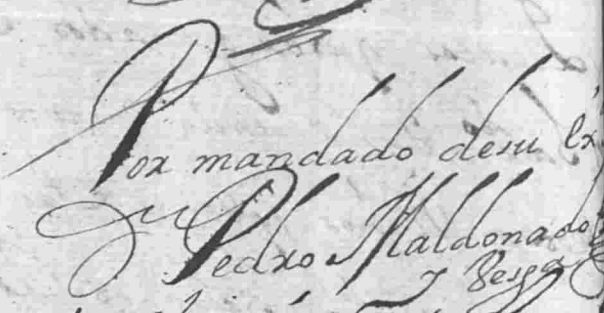 Por mandado desu Ex
Pedro Maldonado
y